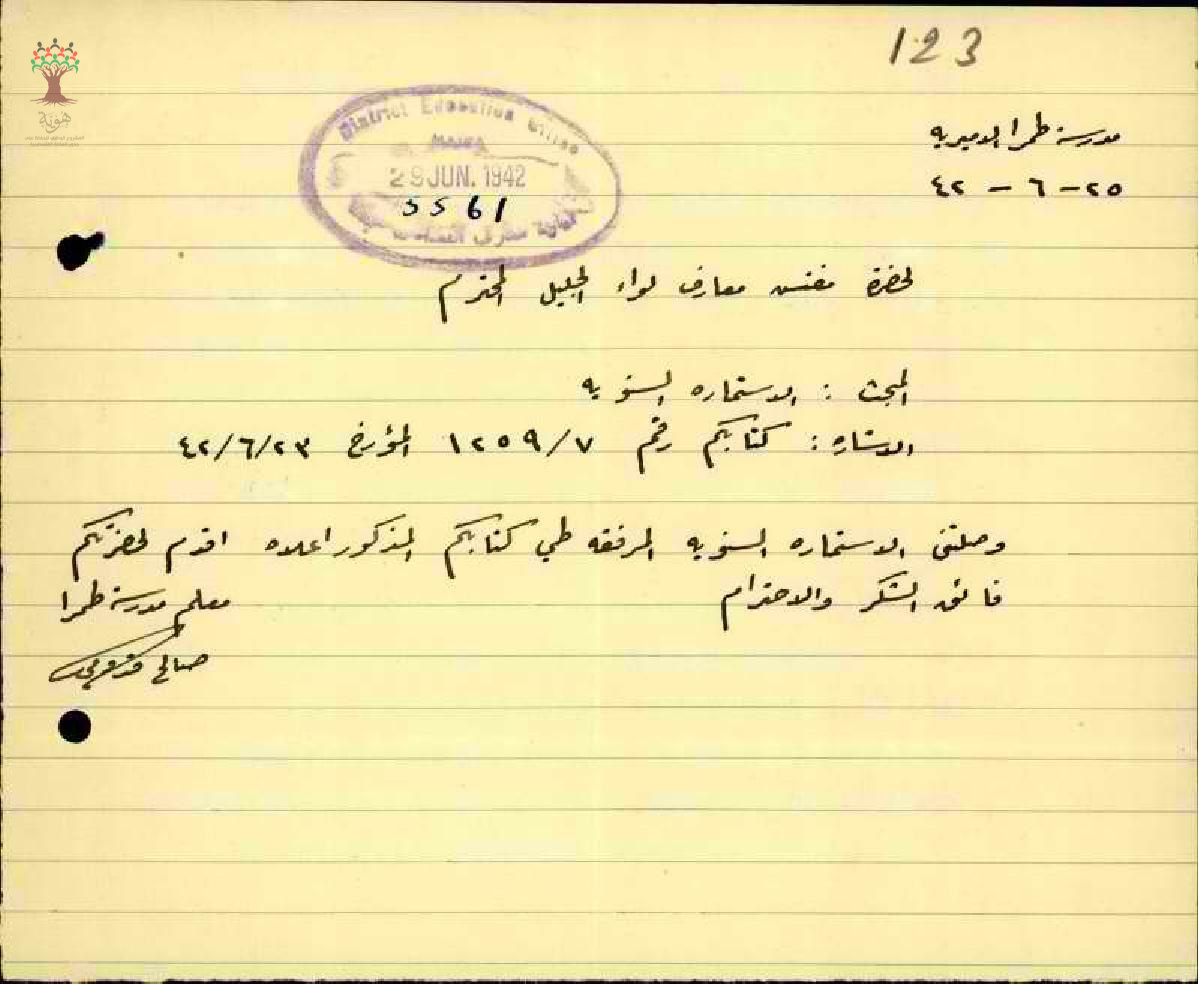 123
District Education Office
HAIFA
29 JUN. 1942
5561
مدرسة طمرا الاميريه
٢٥ - ٦ - ٤٢
لحضرة مفتش معارف لواء الجليل المحترم
المبحث : الاستماره السنويه
الاشاره : كتابكم رقم ١٢٥٩/٧ المؤرخ ٤٢/٦/٢٣
وصلتني الاستماره السنويه المرفقه طي كتابكم المذكور اعلاه اقدم لحضرتكم
فائق الشكر والاحترام
معلم مدرسة طمرا
صالح
هوية